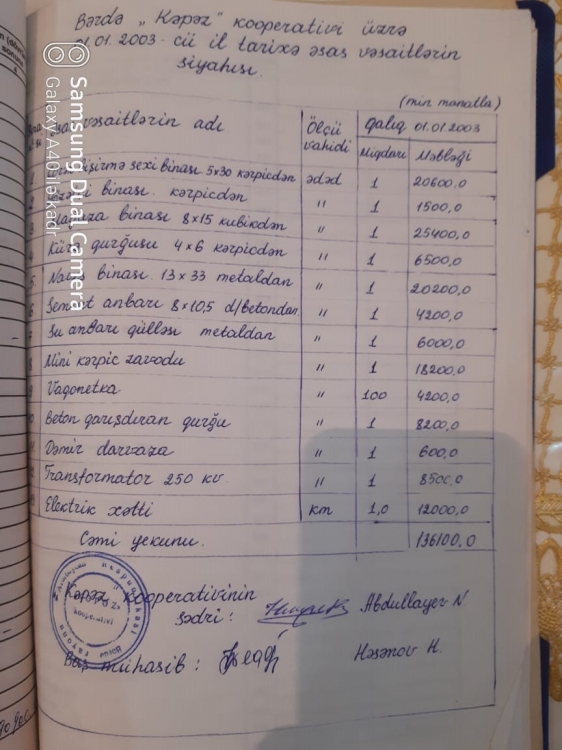 Bərdə „Kəpəz" kooperativi üzrə
01.01.2003-cü il tarixə əsas vəsaitlərin
siyahısı.
(min manatla)
vəsaitlərin adı
Ölçü vahidi
qalıq 01.01.2003
Miqdarı
Məbləği
sexi binası 5x30 kərpicdən ədəd 1 20600,0
binası. kərpicdən " 1 1500,0
binası 8x15 kubikdən " 1 25400,0
qurğusu 4x6 kərpicdən " 1 6500,0
binası 13x33 metaldan " 1 20200,0
anbarı 8x10,5 d/betondan " 1 4200,0
Su anbarı qülləsi metaldan " 1 6000,0
Mini kərpic zavodu " 1 18200,0
Vaqonetka " 100 4200,0
Beton qarışdıran qurğu " 1 8200,0
Dəmir darvaza " 1 600,0
Transformator 250 kv. " 1 8500,0
Elektrik xətti km 1,0 12000,0
Cəmi yekunu. 136100,0
Kəpəz kooperativinin
sədri: Abdullayev N
Baş mühasib: Həsənov H.
Samsung Dual Camera
Galaxy A40